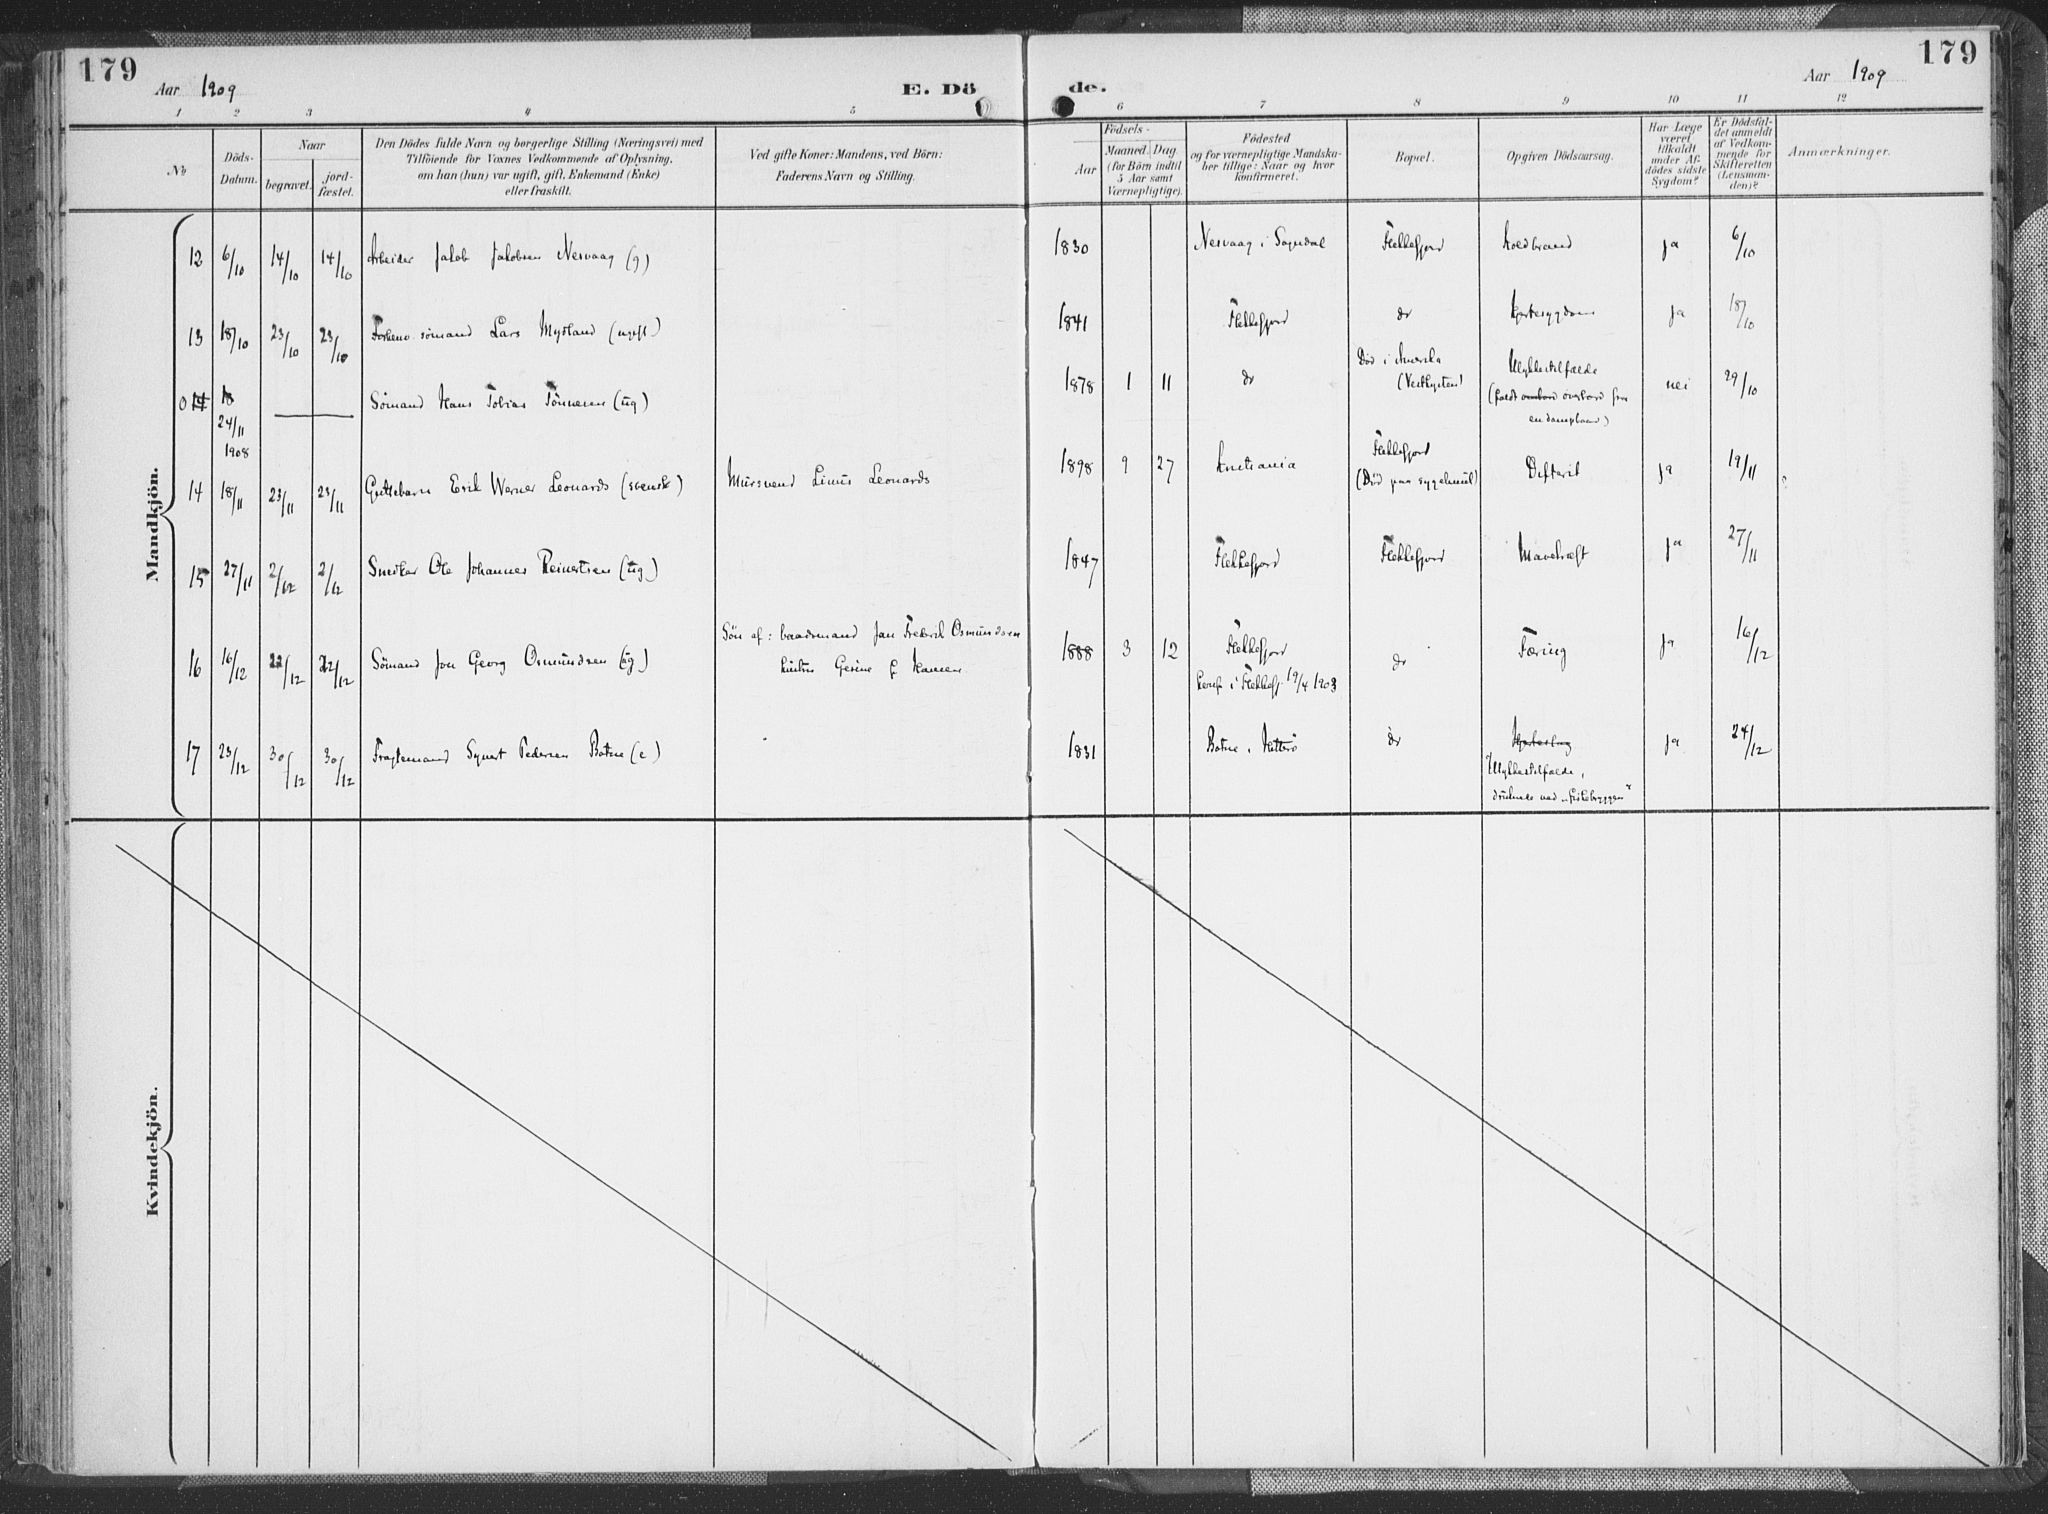 179
Aar 1909
E. Dö
de.
Aar 1909
179
1 2 3 4 5 6 7 8 9 10 11 12
No
Döds-
Datum.
Naar
begravet.
jord-
fæstet.
Den Dödes fulde Navn og borgerlige Stilling (Næringsvei) med
Tilföiende for Voxnes Vedkommende af Oplysning,
om han (hun) var ugift, gift, Enkemand (Enke)
eller fraskilt.
Ved gifte Koner: Mandens, ved Börn:
Faderens Navn og Stilling.
Födsels-
Aar
Maaned. Dag
(for Börn indtil
5 Aar samt
Værnepligtige).
Födested
og for værnepligtige Mandska-
ber tillige: Naar og hvor
konfirmeret.
Bopæl.
Opgiven Dödsaarsag.
Har Læge
været
tilkaldt
under Af-
dödes sidste
Sygdom?
Er Dödsfal-
det anmeldt
af Vedkom-
mende for
Skifteretten
(Lensman-
den)?
Anmærkninger.
Mandkjön.
12 6/10 14/10 14/10 Arbeider Jakob Jakobsen Nesvaag (g) 1830 Nesvaag i Sogndal Flekkefjord Koldbrand ja 6/10
13 18/10 23/10 23/10 Forhenv. sömand Lars Mydland (ugift) 1841 Flekkefjord do Hjertesygdom ja 18/10
0 14 18
24/11
1908
Sömand Hans Tobias Tönnesen (ug) 1878 1 11 do
Död i Amerika
(Vestkysten)
Ulykkestilfælde
(faldt ombord overbord fra
en dampbaad)
nei 29/10
14 18/11 23/11 23/11 Guttebarn Erik Werner Leonards (svensk) Mursvend Linus Leonards 1898 9 27 Kristiania
Flekkefjord
(Död paa sygehuset)
Difterit ja 19/11
15 27/11 2/12 2/12 Snedker Ole Johannes Reinertsen (ug) 1847 Flekkefjord Flekkefjord Mavekræft ja 27/11
16 16/12 22/12 22/12 Sömand Jon Georg Osmundsen (ug)
Sön af: baadsmand Jan Fredrik Osmundsen
hustru Gesine f. Hansen
1888 3 12
Flekkefjord
konf. i Flekkefj. 19/4 1903
do Tæring ja 16/12
17 23/12 30/12 30/12 Fragtemand Syvert Pedersen Botne (e) 1831 Botne, Hitterö do
Hjerteslag
"Ulykkestilfælde,
druknet ved "Fiskebryggen"
ja 24/12
Kvindekjön.